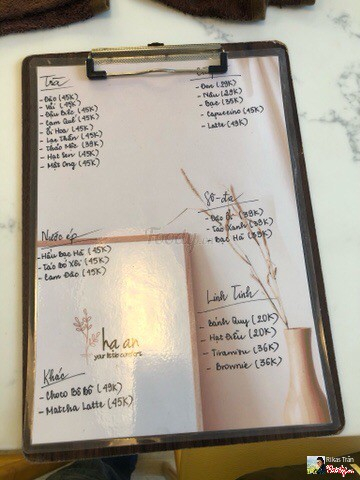 Trà
- Đào (45K)
- Vải (45K)
- Dâu Biển (45K)
- Cam Quế (45K)
- Bí Hoa (45K)
- Lạc Thần (45K)
- Thảo Mộc (39K)
- Hạt Sen (45K)
- Mật Ong (45K)
- Đen (29K)
- Nâu (29K)
- Bạc (35K)
- Capuccino (45K)
- Latte (49K)
Sô-đa
- Đào Ổi (39K)
- Táo Xanh (39K)
- Bạc Hà (39K)
Nước ép
- Hấu Bạc Hà (45K)
- Táo Bỏ Xôi (45K)
- Cam Đào (45K)
Foody
hạ an
your little comfort
Linh Tinh
- Bánh Quy (20K)
- Hạt Điều (20K)
- Tiramisu (36K)
- Brownie (36K)
Khác
- Choco Bồ Bô (49K)
- Matcha Latte (45K)
Rikas Trần
Foody.vn